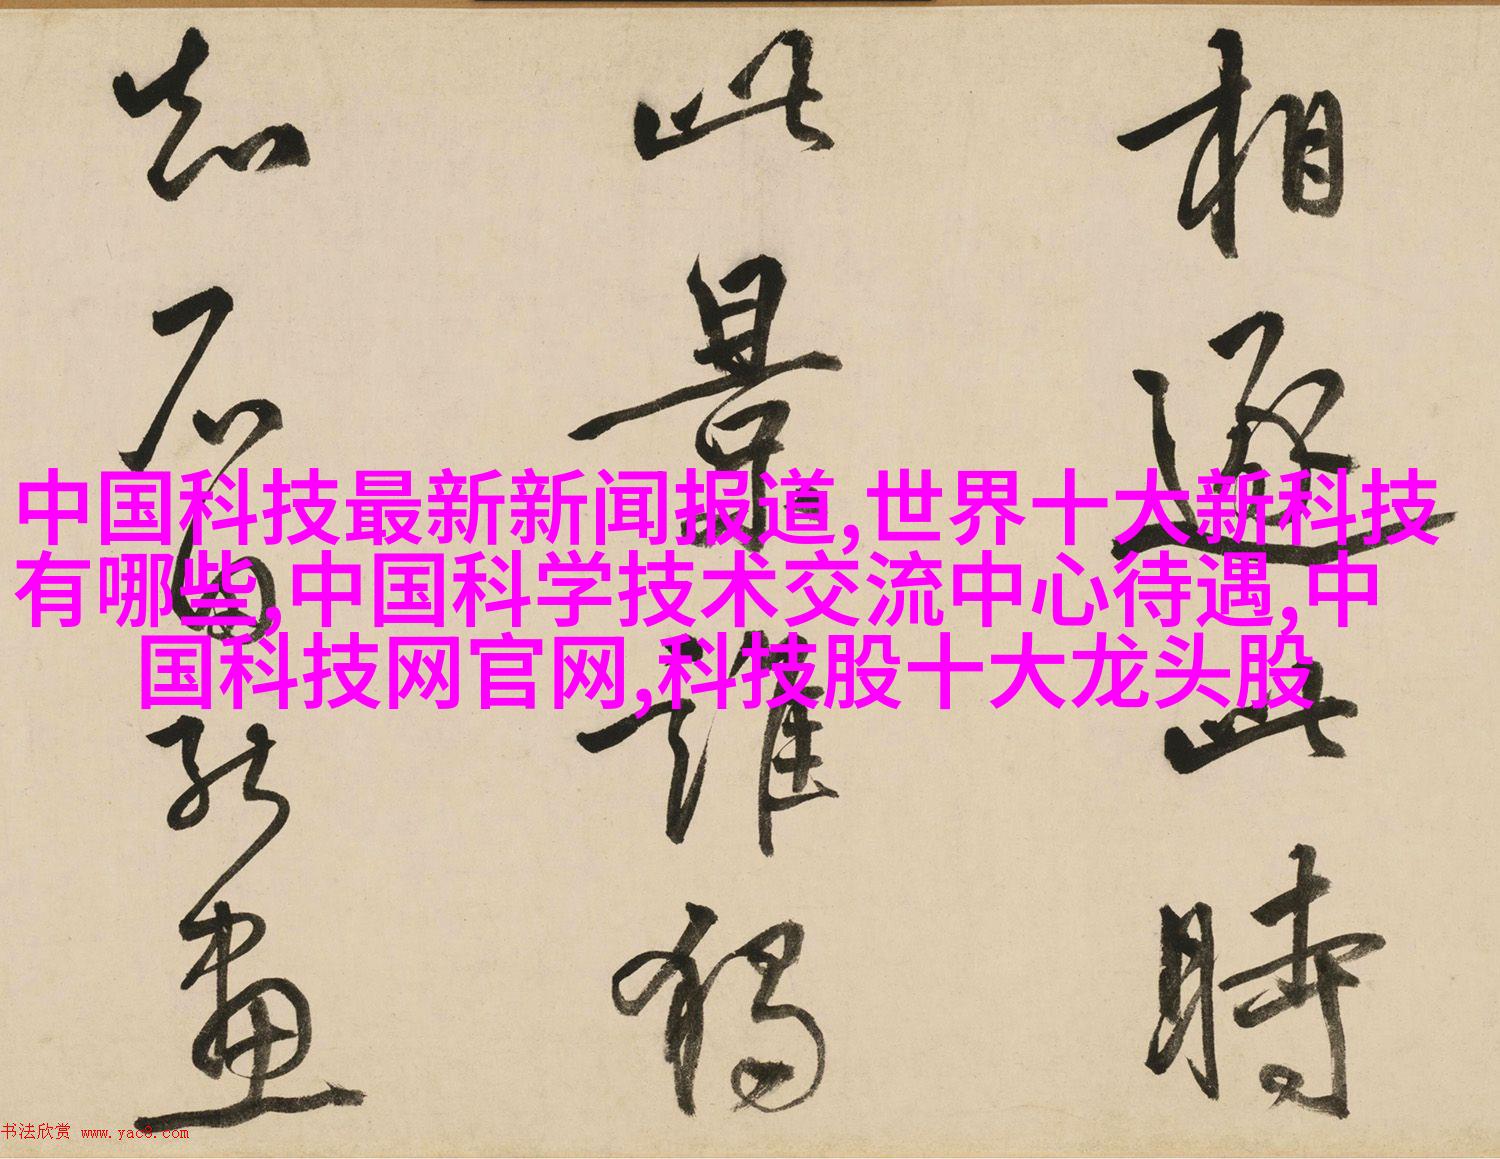 相逐此時
此景誰獨
知石田能畫
中国科技最新新闻报道,世界十大新科技
有哪些,中国科学技术交流中心待遇,中
国科技网官网,科技股十大龙头股
书法欣赏 www.yac8.com